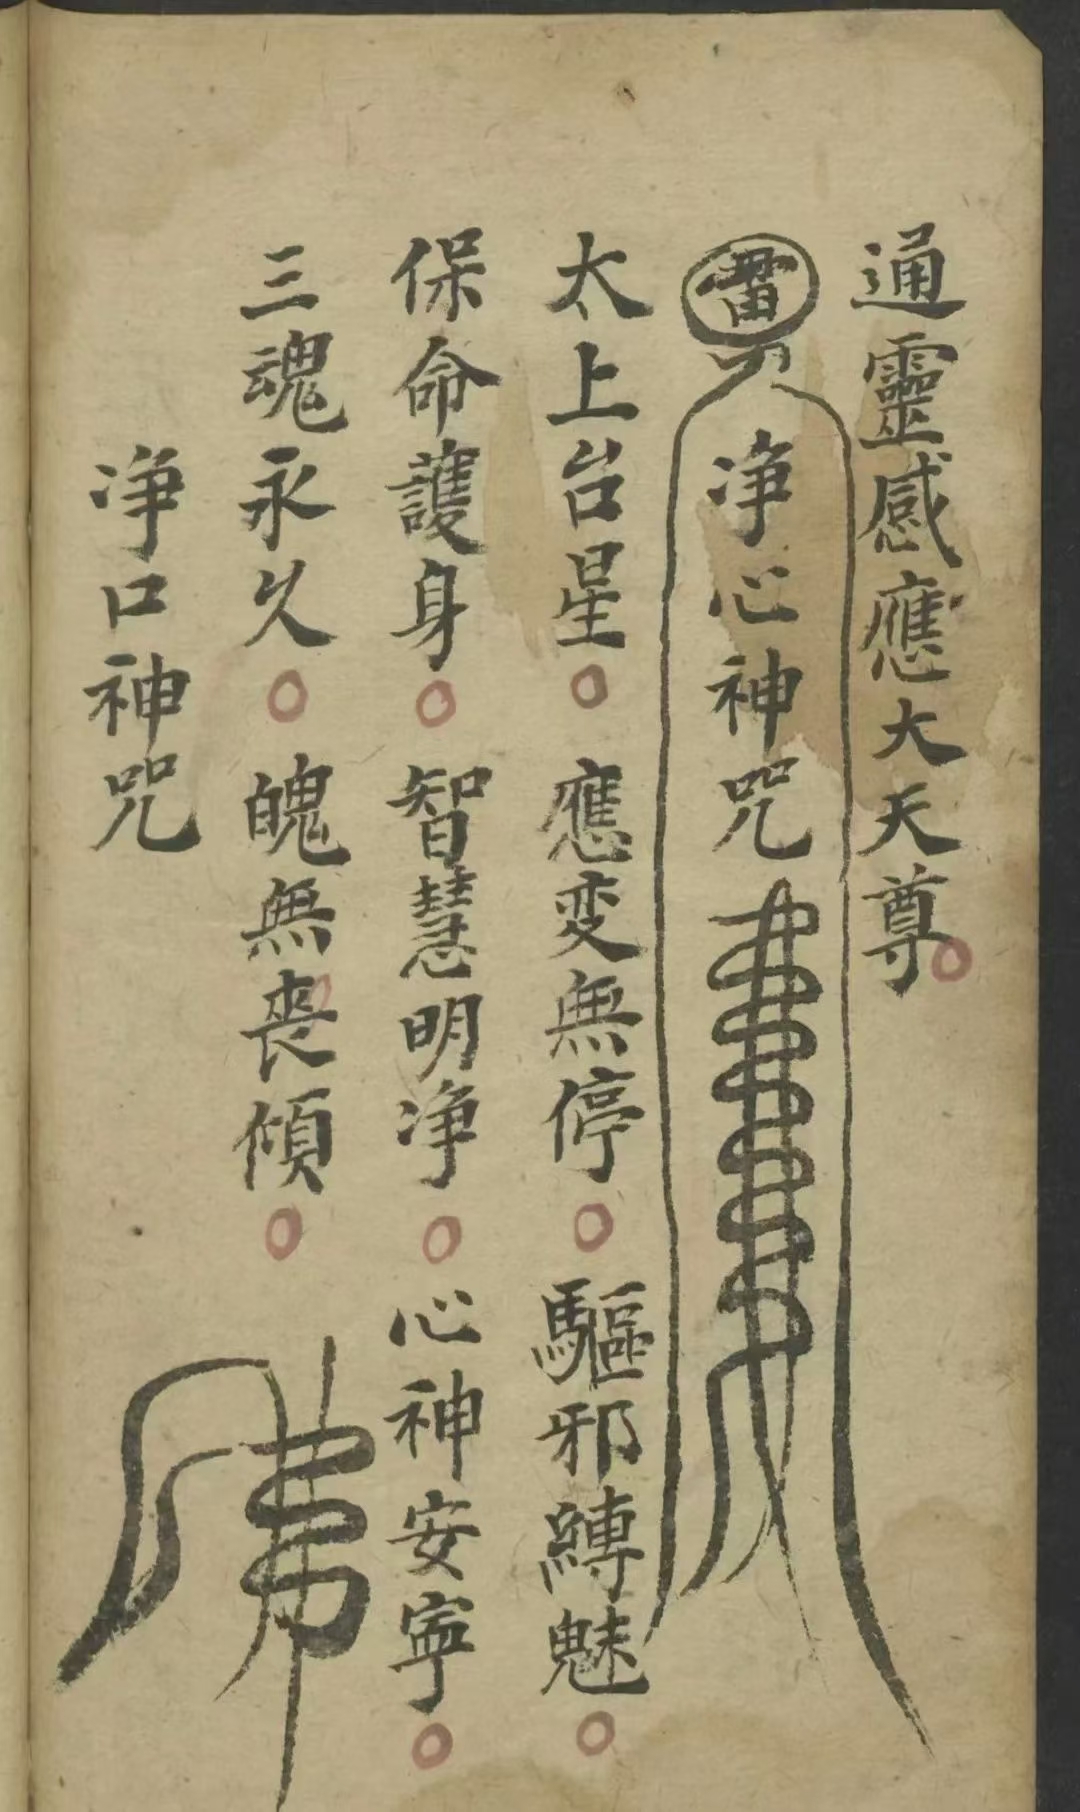 通靈感應大天尊
雷
净心神咒
太上台星應变無停驅邪縛魅
保命護身智慧明净心神安寧
三魂永久魄無丧傾
净口神咒